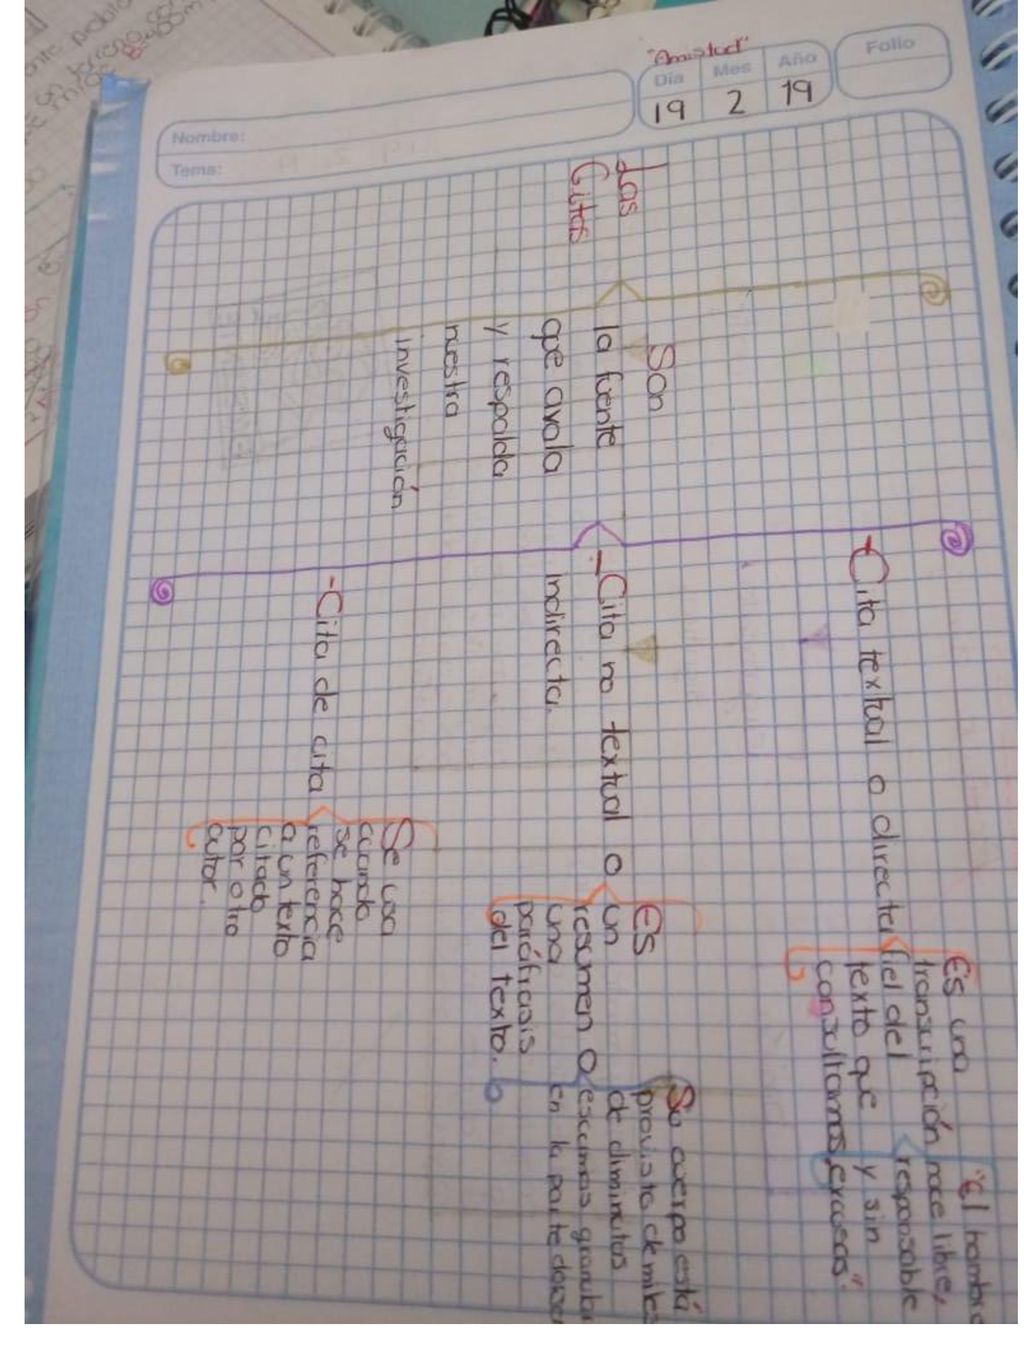 "Amistad"
Día Mes Año
19 2 19
Folio
Nombre:
Tema:
Las
Citas
Son
la fuente
que avala
y respalda
nuestra
investigación
-Cita textual o directa
Es una
transcripción
fiel del
texto que
consultamos
"El hombre
nace libre,
responsable
y sin
excusas".
-Cita no textual o
indirecta.
Es
un
resumen o
una
paráfrasis
del texto.
Su cuerpo está
provisto de miles
de diminutos
escamas
en la parte
-Cita de cita
Se usa
cuando
se hace
referencia
a un texto
citado
por otro
autor.